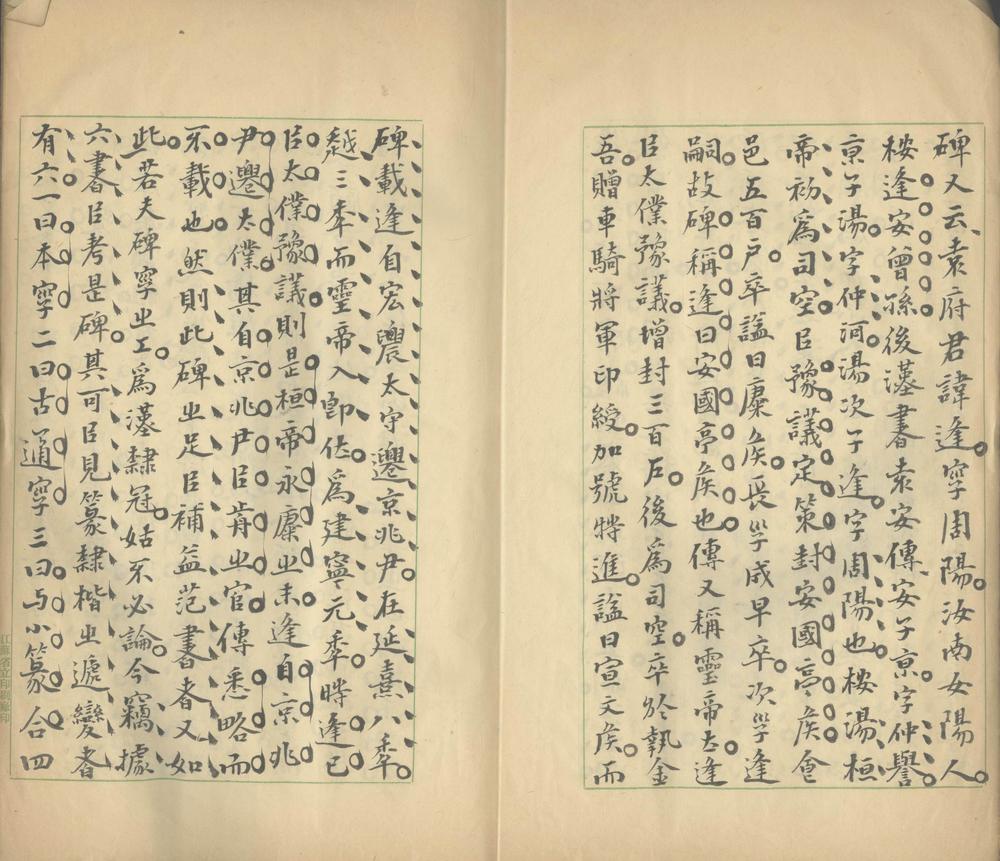 碑又云袁府君諱逢字周陽汝南女陽人
桉逢安曾孫後漢書袁安傳安子京字仲譽
京子湯字仲河湯次子逢字周陽也桉湯桓
帝初為司空㠯豫議定策封安國亭侯食
邑五百戶卒謚曰康侯長子成早卒次子逢
嗣故碑稱逢曰安國亭侯也傳又稱靈帝㠯逢
㠯太僕豫議增封三百戶後為司空卒於執金
吾贈車騎將軍印綬加號特進謚曰宣文侯而
碑載逢自宏農太守遷京兆尹在延熹八秊
越三秊而靈帝入卽位為建寧元秊時逢已
㠯太僕豫議則是桓帝永康㞢末逢自京兆
尹遷太僕其自京兆尹㠯歬㞢官傳悉略而
不載也然則此碑㞢足㠯補益范書者又如
此若夫碑字㞢工為漢隸冠姑不必論今竊據
六書㠯考是碑其可㠯見篆隸楷㞢遞變者
有六一曰本字二曰古通字三曰与小篆合四
江蘇省立印刷廠印